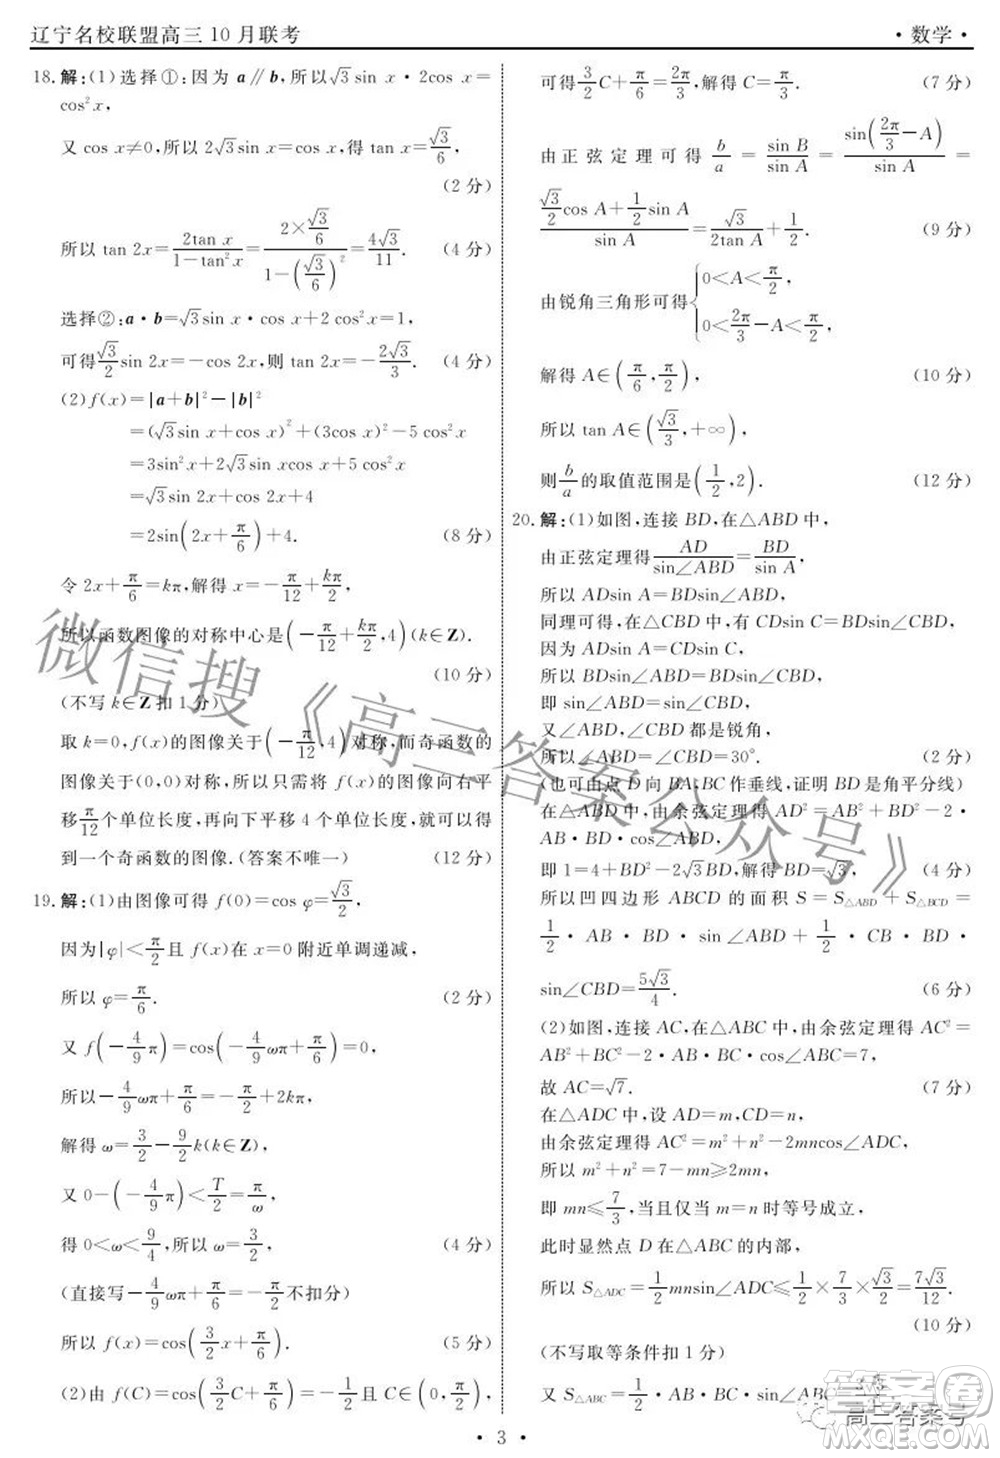 辽宁名校联盟高三 10 月联考
·数学·
18.解:(1)选择①:因为 a∥b,所以√3sin x·2cos x=
cos²x,
又 cos x≠0,所以 2√3sin x=cos x,得 tan x=√3/6,
(2 分)
所以 tan 2x=2tan x/(1-tan²x)=(2×√3/6)/(1-(√3/6)²)=4√3/11. (4 分)
选择②:a·b=√3sin x·cos x+2 cos²x=1,
可得√3/2 sin 2x=-cos 2x,则 tan 2x=-2√3/3. (4 分)
(2)f(x)=|a+b|²-|b|²
=(√3sin x+cos x)²+(3cos x)²-5 cos²x
=3sin²x+2√3sin xcos x+5 cos²x
=√3sin 2x+cos 2x+4
=2sin(2x+π/6)+4. (8 分)
令 2x+π/6=kπ,解得 x=-π/12+kπ/2,
所以函数图像的对称中心是(-π/12+kπ/2,4)(k∈Z).
(10 分)
(不写 k∈Z 扣 1 分)
取 k=0,f(x)的图像关于(-π/12,4)对称,而奇函数的
图像关于(0,0)对称,所以只需将 f(x)的图像向右平
移π/12个单位长度,再向下平移 4 个单位长度,就可以得
到一个奇函数的图像.(答案不唯一) (12 分)
19.解:(1)由图像可得 f(0)=cos φ=√3/2,
因为|φ|<π/2且 f(x)在 x=0 附近单调递减,
所以 φ=π/6. (2 分)
又 f(-4/9π)=cos(-4/9ωπ+π/6)=0,
所以-4/9ωπ+π/6=-π/2+2kπ,
解得 ω=3/2-9/2k(k∈Z)
又 0-(-4/9π)<T/2=π/ω
得 0<ω<9/4,所以 ω=3/2. (4 分)
(直接写-4/9ωπ+π/6=-π/2不扣分)
所以 f(x)=cos(3/2x+π/6). (5 分)
(2)由 f(C)=cos(3/2C+π/6)=-1/2且 C∈(0,π/2),
可得3/2C+π/6=2π/3,解得 C=π/3. (7 分)
由正弦定理可得 b/a=sin B/sin A=sin(2π/3-A)/sin A=
(√3/2cos A+1/2sin A)/sin A=√3/(2tan A)+1/2. (9 分)
由锐角三角形可得{0<A<π/2, 0<2π/3-A<π/2,
解得 A∈(π/6,π/2), (10 分)
所以 tan A∈(√3/3,+∞),
则b/a的取值范围是(1/2,2). (12 分)
20.解:(1)如图,连接 BD,在△ABD 中,
由正弦定理得AD/sin∠ABD=BD/sin A,
所以 ADsin A=BDsin∠ABD,
同理可得,在△CBD 中,有 CDsin C=BDsin∠CBD,
因为 ADsin A=CDsin C,
所以 BDsin∠ABD=BDsin∠CBD,
即 sin∠ABD=sin∠CBD,
又∠ABD,∠CBD 都是锐角,
所以∠ABD=∠CBD=30°. (2 分)
(也可由点 D 向 BA,BC 作垂线,证明 BD 是角平分线)
在△ABD 中,由余弦定理得 AD²=AB²+BD²-2·
AB·BD·cos∠ABD,
即 1=4+BD²-2√3BD,解得 BD=√3, (4 分)
所以凹四边形 ABCD 的面积 S=S△ABD+S△BCD=
1/2·AB·BD·sin∠ABD+1/2·CB·BD·
sin∠CBD=5√3/4. (6 分)
(2)如图,连接 AC,在△ABC 中,由余弦定理得 AC²=
AB²+BC²-2·AB·BC·cos∠ABC=7,
故 AC=√7. (7 分)
在△ADC 中,设 AD=m,CD=n,
由余弦定理得 AC²=m²+n²-2mncos∠ADC,
所以 m²+n²=7-mn≥2mn,
即 mn≤7/3,当且仅当 m=n 时等号成立,
此时显然点 D 在△ABC 的内部,
所以 S△ADC=1/2mnsin∠ADC≤1/2×7/3×√3/2=7√3/12.
(10 分)
(不写取等条件扣 1 分)
又 S△ABC=1/2·AB·BC·sin∠ABC=
·3·
微信搜《高三答案公众号》
高三答案号
答案圈
MXQE.COM